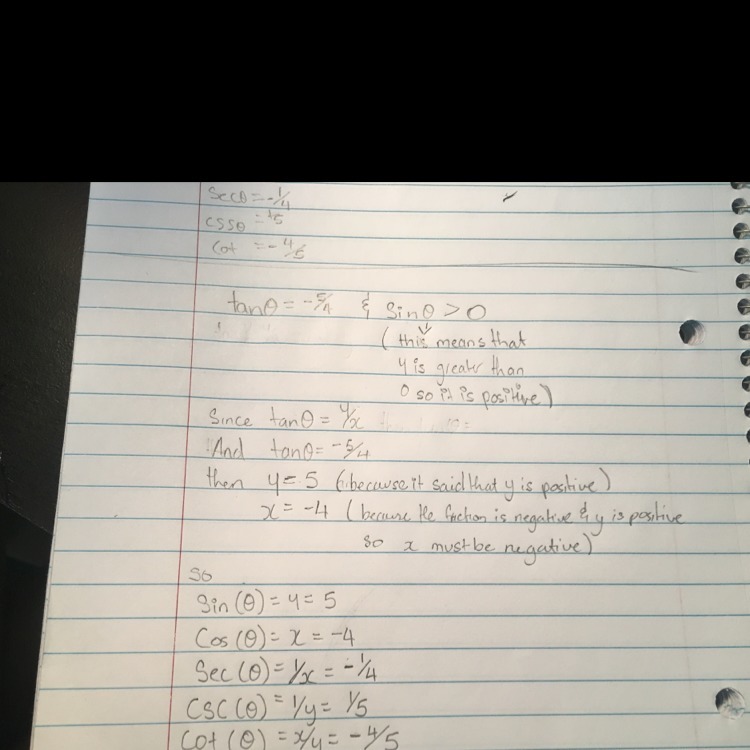 Secθ = -1/4
cssθ = 1/5
Cot = -4/5
tanθ = -5/4 & Sinθ > 0
(this means that
y is greater than
0 so it is positive)
Since tanθ = y/x
And tanθ = -5/4
then y = 5 (because it said that y is postive)
x = -4 (because the friction is negative & y is positive
so x must be negative)
so
Sin(θ) = y = 5
Cos(θ) = x = -4
Sec(θ) = 1/x = -1/4
CSC(θ) = 1/y = 1/5
Cot(θ) = x/y = -4/5